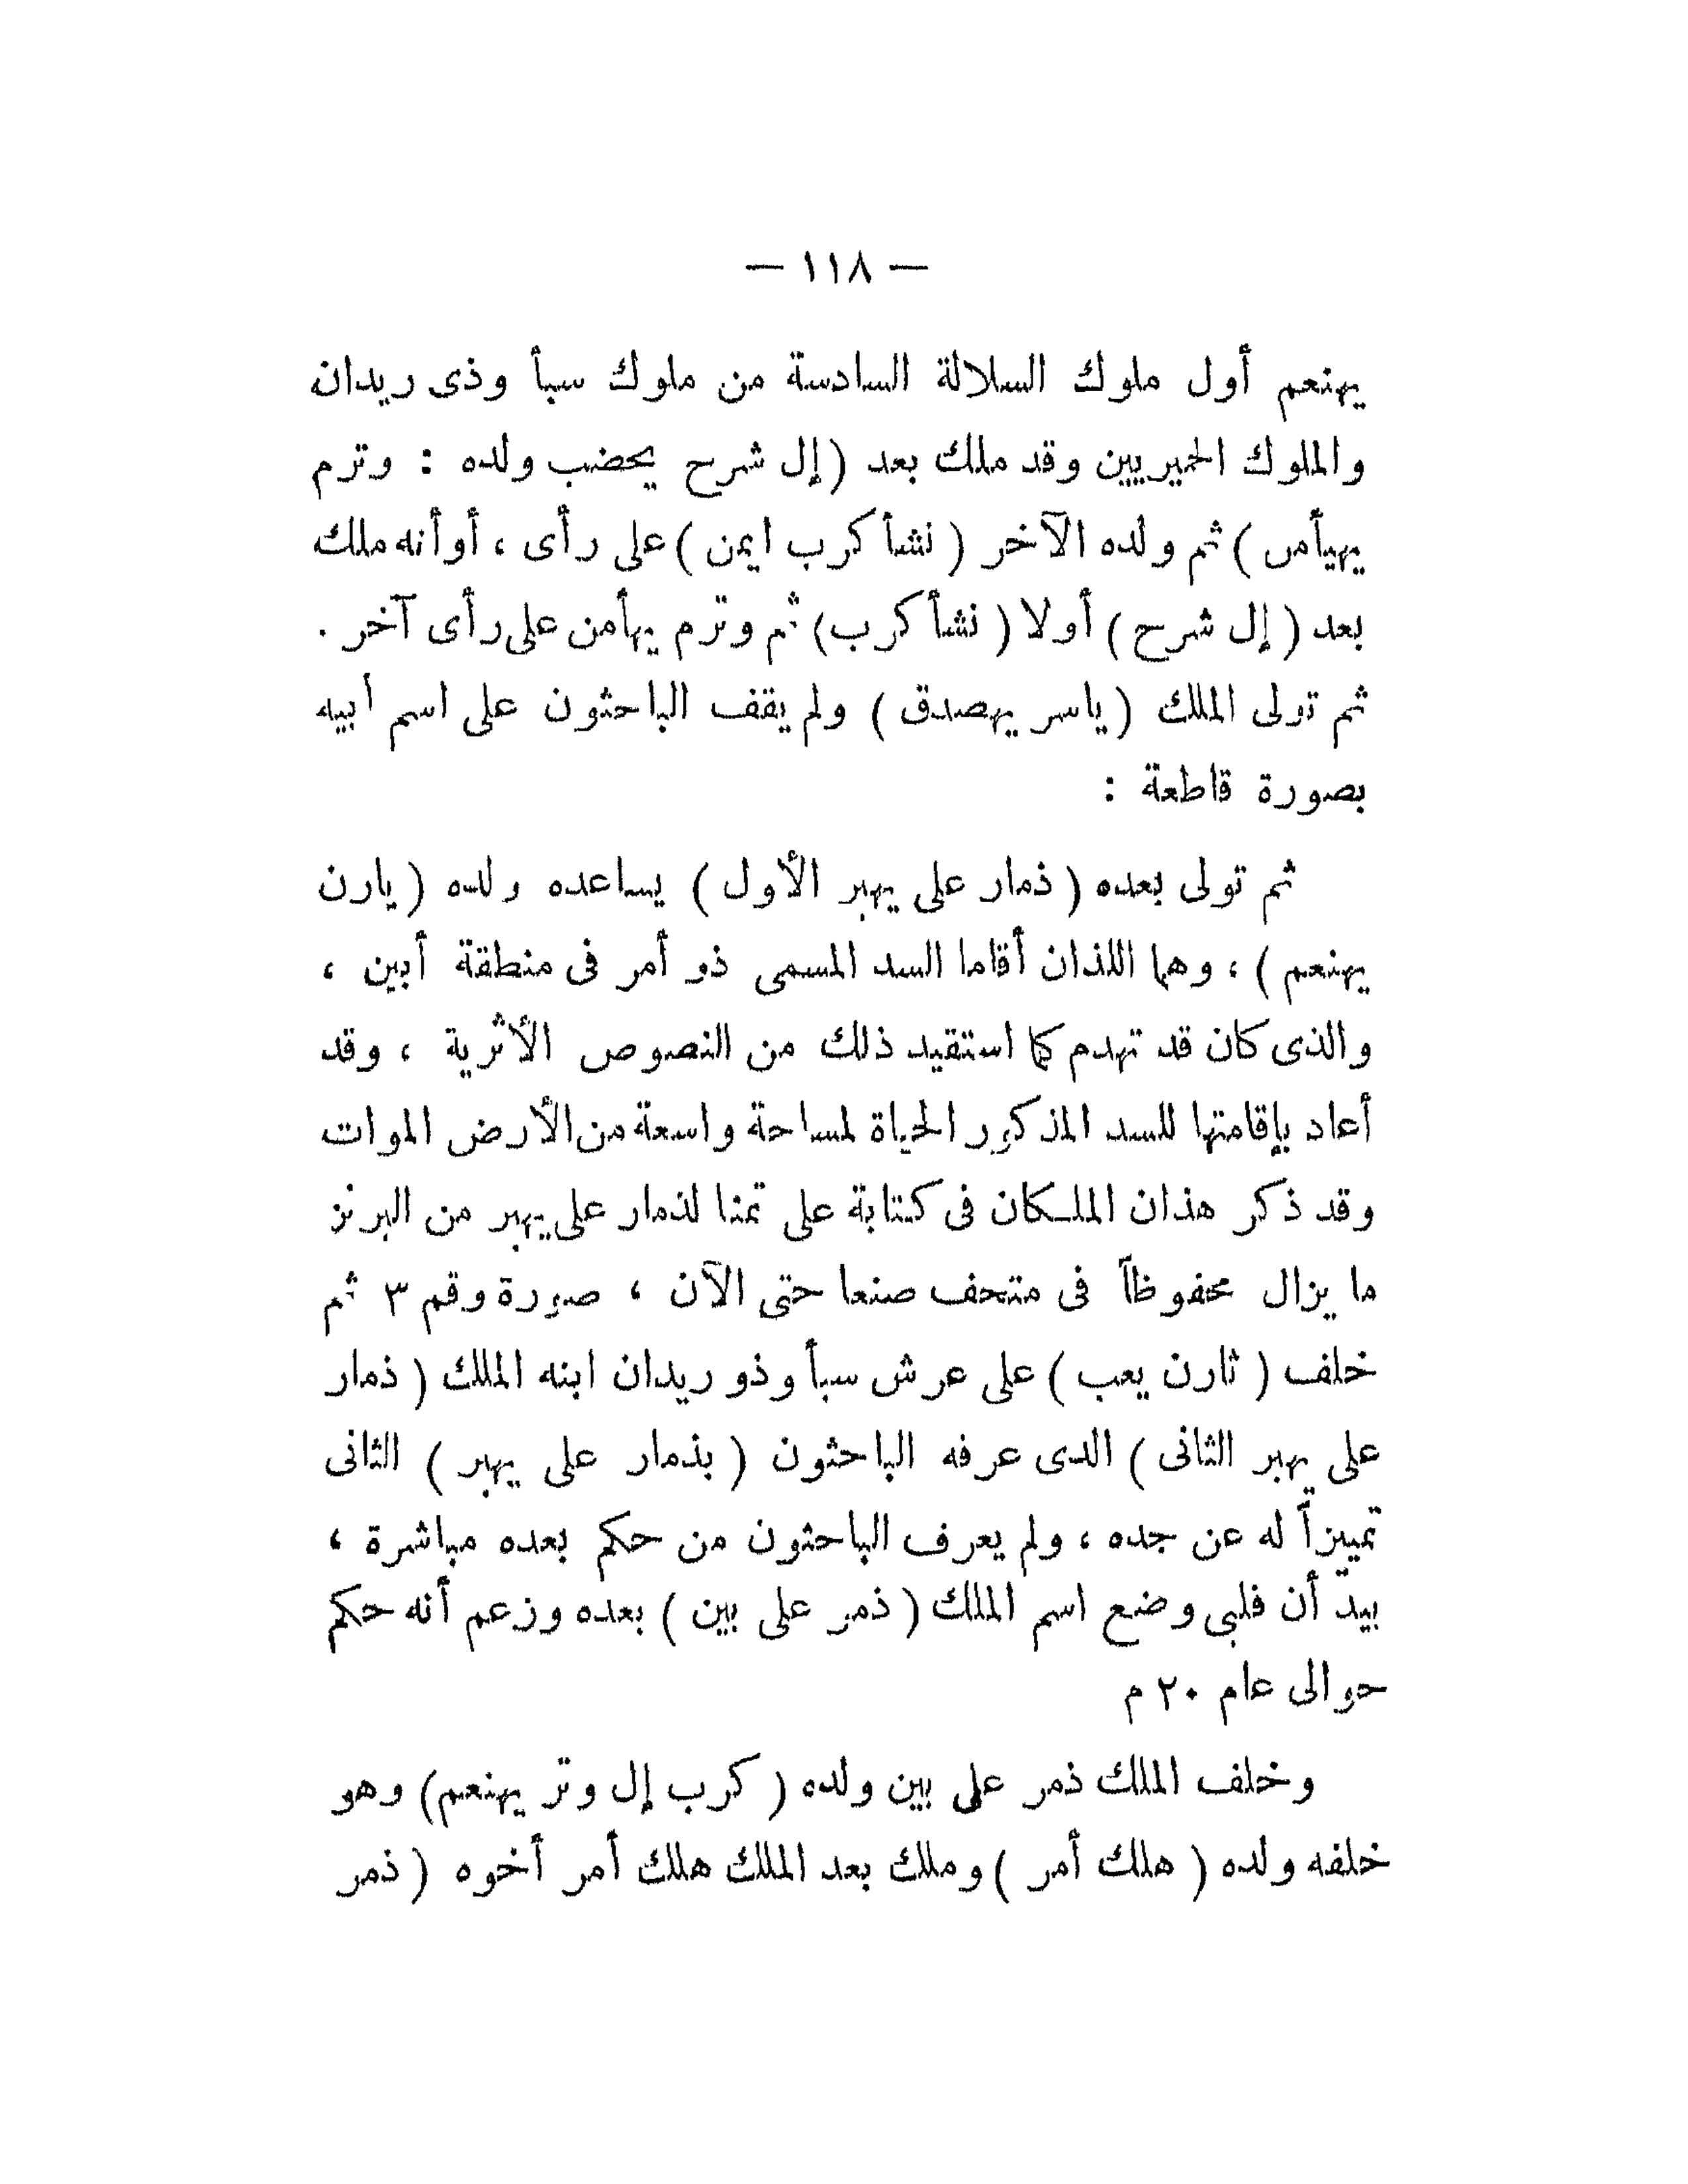 — ١١٨ —
يهنعم أول ملوك السلالة السادسة من ملوك سبأ وذى ريدان
والملوك الحميريين وقد ملك بعد (إل شرح يحضب ولده : وترم
يهيأمن) ثم ولده الآخر ( نشأ كرب ايمن ) على رأى ، أوأنه ملك
بعد ( إل شرح ) أولا ( نشأ كرب ) ثم وترم يهأمن على رأى آخر .
ثم تولى الملك ( ياسر يهصدق ) ولم يقف الباحثون على اسم أبيه
بصورة قاطعة :
ثم تولى بعده ( ذمار على يهبر الأول ) يساعده ولده ( يارن
يهنعم ) ، وهما اللذان أقاما السد المسمى ذو أمر فى منطقة أبين ،
والذى كان قد تهدم كما استقيد ذلك من النصوص الأثرية ، وقد
أعاد بإقامتها للسد المذكور الحياة لمساحة واسعة من الأرض الموات
وقد ذكر هذان الملكان فى كتابة على تمنا لذمار على يهبر من البرنز
ما يزال محفوظاً فى متحف صنعا حتى الآن ، صورة وقم ٣ ثم
خلف ( ثارن يعب ) على عرش سبأ وذو ريدان ابنه الملك ( ذمار
على يهبر الثانى ) الدى عرفه الباحثون ( بذمار على يهبر ) الثانى
تمييزاً له عن جده ، ولم يعرف الباحثون من حكم بعده مباشرة ،
بيد أن فلبى وضع اسم الملك ( ذمر على بين ) بعده وزعم أنه حكم
حوالى عام ٢٠ م
وخلف الملك ذمر على بين ولده ( كرب إل وتر يهنعم ) وهو
خلفه ولده ( هلك أمر ) وملك بعد الملك هلك أمر أخوه ( ذمر